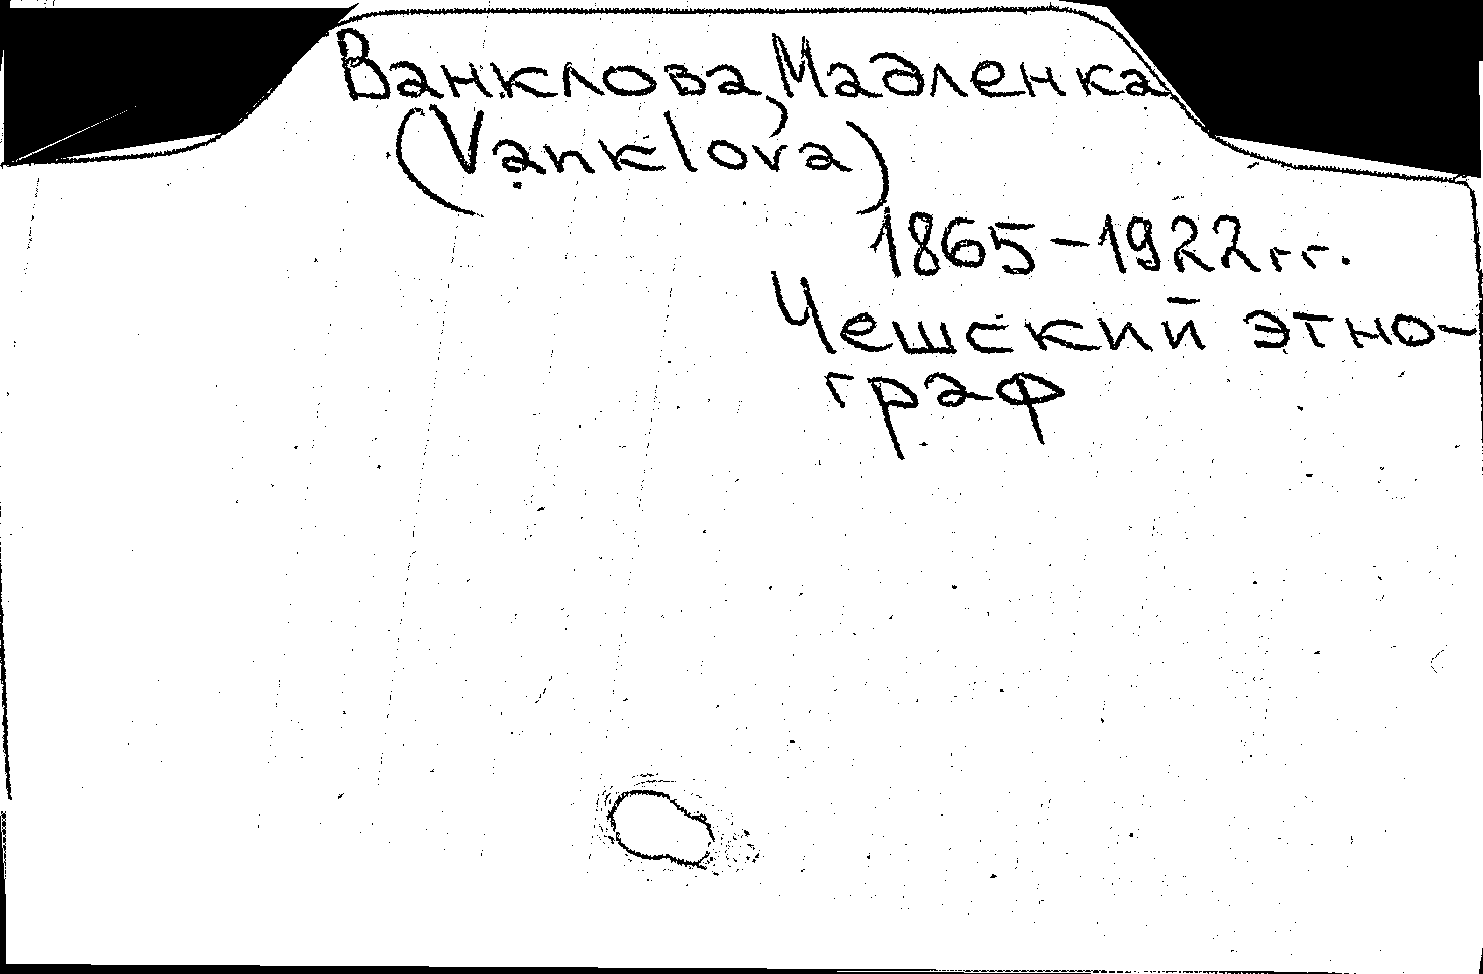 Ванклова, Мадленка
(Vanklova)
1865-1922 гг.
Чешский этно-
граф